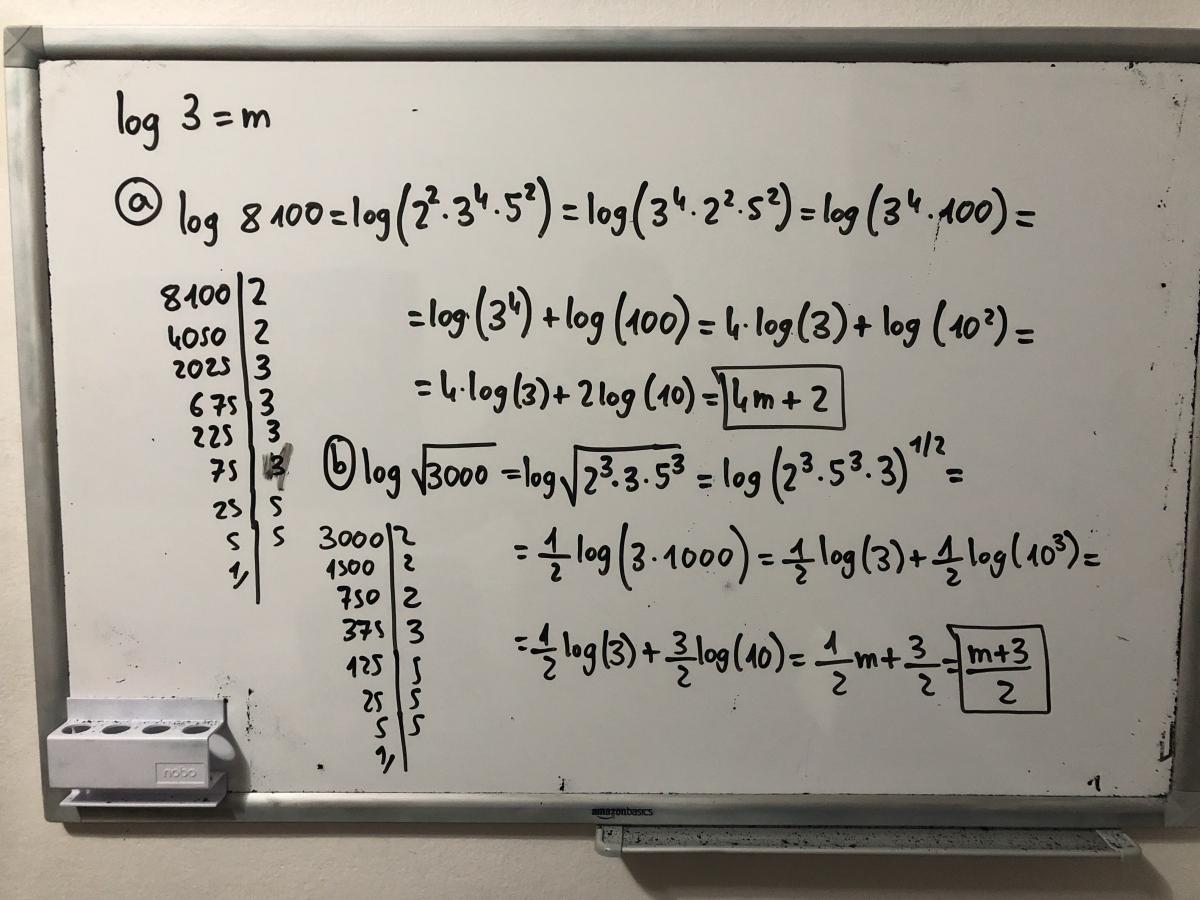 log 3 = m
ⓐ log 8100 = log(2²·3⁴·5²) = log(3⁴·2²·5²) = log(3⁴·100) =
8100 | 2
4050 | 2
2025 | 3
675 | 3
225 | 3
75 | 3
25 | 5
5 | 5
1,
= log(3⁴) + log(100) = 4·log(3) + log(10²) =
= 4·log(3) + 2log(10) = 4m + 2
ⓑ log √3000 = log √2³·3·5³ = log(2³·5³·3)^1/2 =
3000 | 2
1500 | 2
750 | 2
375 | 3
125 | 5
25 | 5
5 | 5
1,
= 1/2 log(3·1000) = 1/2 log(3) + 1/2 log(10³) =
= 1/2 log(3) + 3/2 log(10) = 1/2 m + 3/2 = m+3/2
nobo
amazonbasics